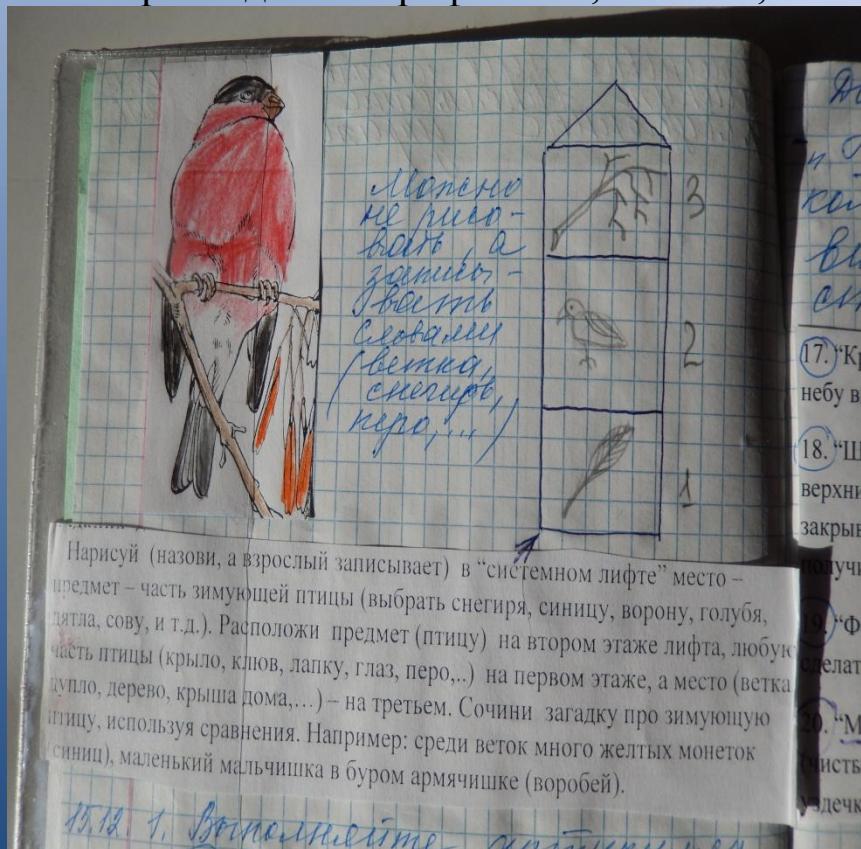 Можно
не рисо-
вать, а
записы-
вать
словами
(ветка,
снегирь,
перо,...)
3
2
1
Нарисуй (назови, а взрослый записывает) в “системном лифте” место –
предмет – часть зимующей птицы (выбрать снегиря, синицу, ворону, голубя,
дятла, сову, и т.д.). Расположи предмет (птицу) на втором этаже лифта, любую
часть птицы (крыло, клюв, лапку, глаз, перо,..) на первом этаже, а место (ветка
дупло, дерево, крыша дома,…) – на третьем. Сочини загадку про зимующую
птицу, используя сравнения. Например: среди веток много желтых монеток
(синиц), маленький мальчишка в буром армячишке (воробей).
15.12. 1. Выполняйте
17. “К
небу в
18. “Ш
верхни
закры
получи
19. “Ф
сделат
20. “М
(чисть
уздечк